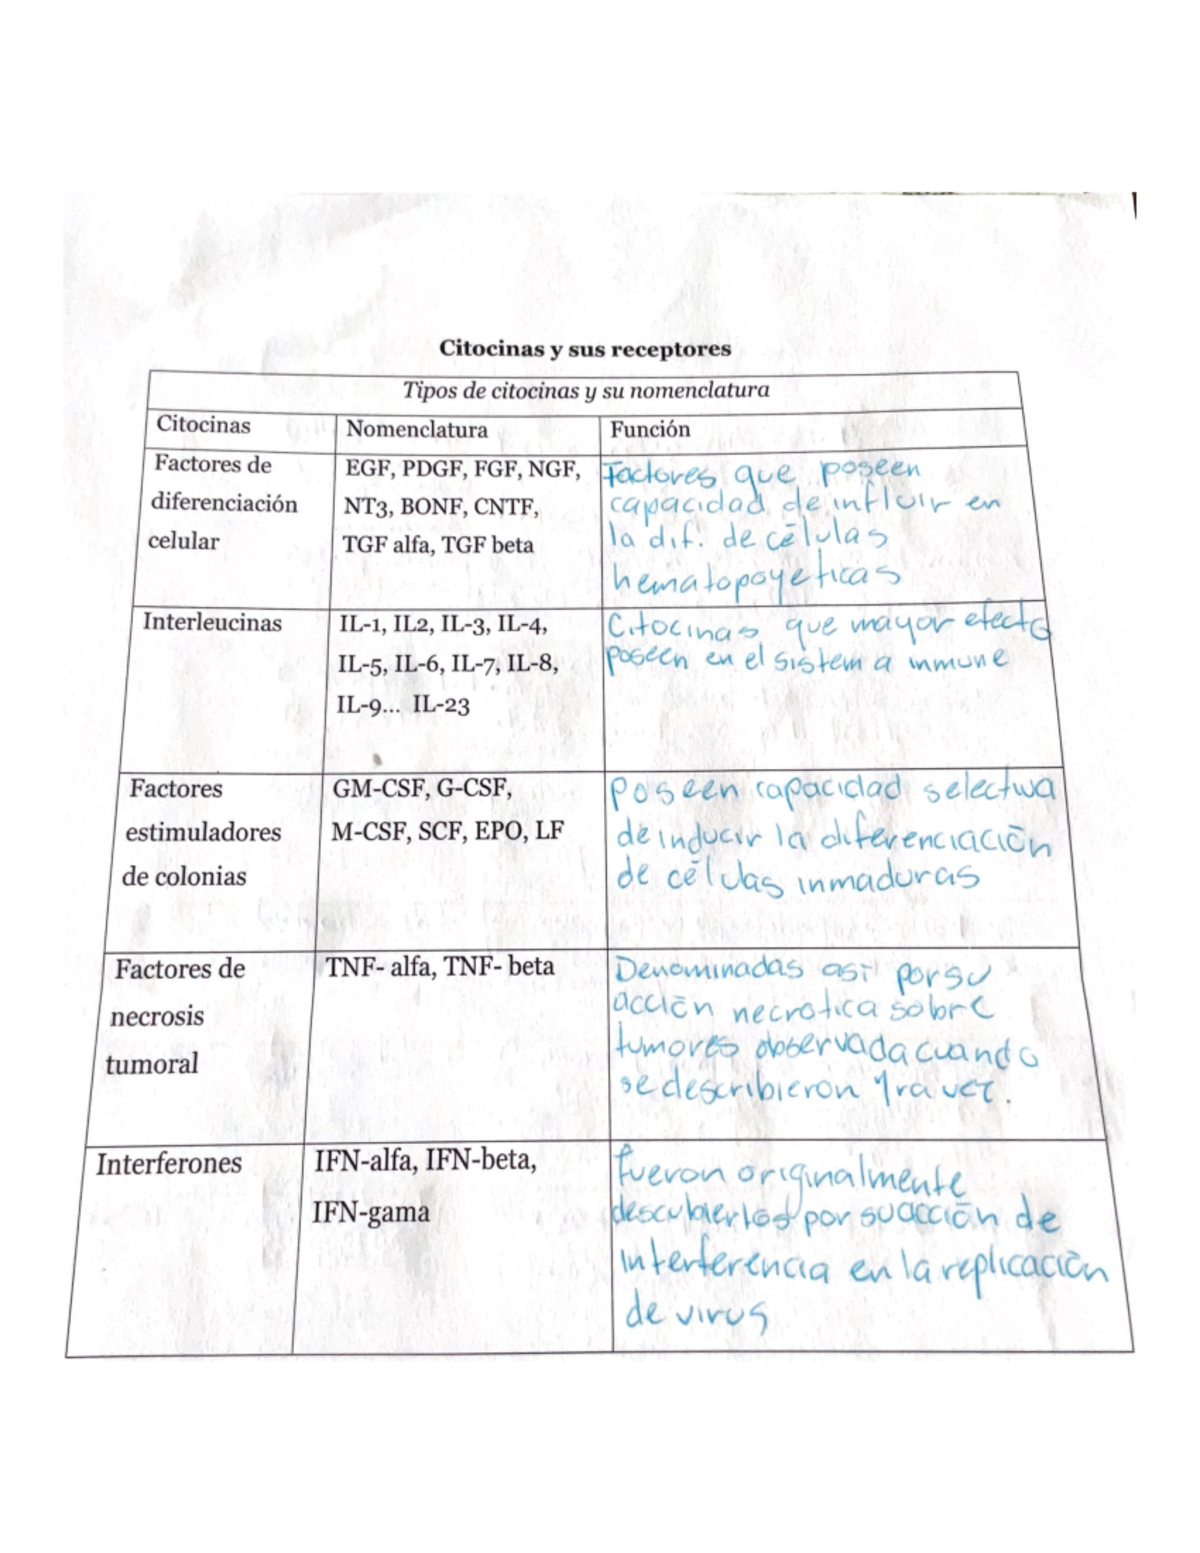 Citocinas y sus receptores
Tipos de citocinas y su nomenclatura
Citocinas
Nomenclatura
Función
Factores de
diferenciación
celular
EGF, PDGF, FGF, NGF,
NT3, BONF, CNTF,
TGF alfa, TGF beta
Factores que poseen
capacidad de influir en
la dif. de células
hematopoyeticas
Interleucinas
IL-1, IL2, IL-3, IL-4,
IL-5, IL-6, IL-7, IL-8,
IL-9... IL-23
Citocinas que mayor efecto
poseen en el sistema inmune
Factores
estimuladores
de colonias
GM-CSF, G-CSF,
M-CSF, SCF, EPO, LF
Poseen capacidad selectiva
de inducir la diferenciación
de células inmaduras
Factores de
necrosis
tumoral
TNF- alfa, TNF- beta
Denominadas así por su
acción necrotica sobre
tumores observada cuando
se describieron 1ra vez.
Interferones
IFN-alfa, IFN-beta,
IFN-gama
Fueron originalmente
descubiertos por su acción de
interferencia en la replicación
de virus